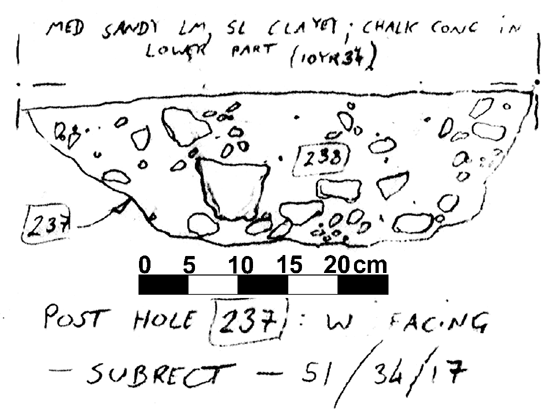 MED SANDY LM, SL CLAYEY; CHALK CONC IN
LOWER PART (10YR34)
238
237
0 5 10 15 20 cm
POST HOLE 237 : W FACING
- SUBRECT - 51/34/17